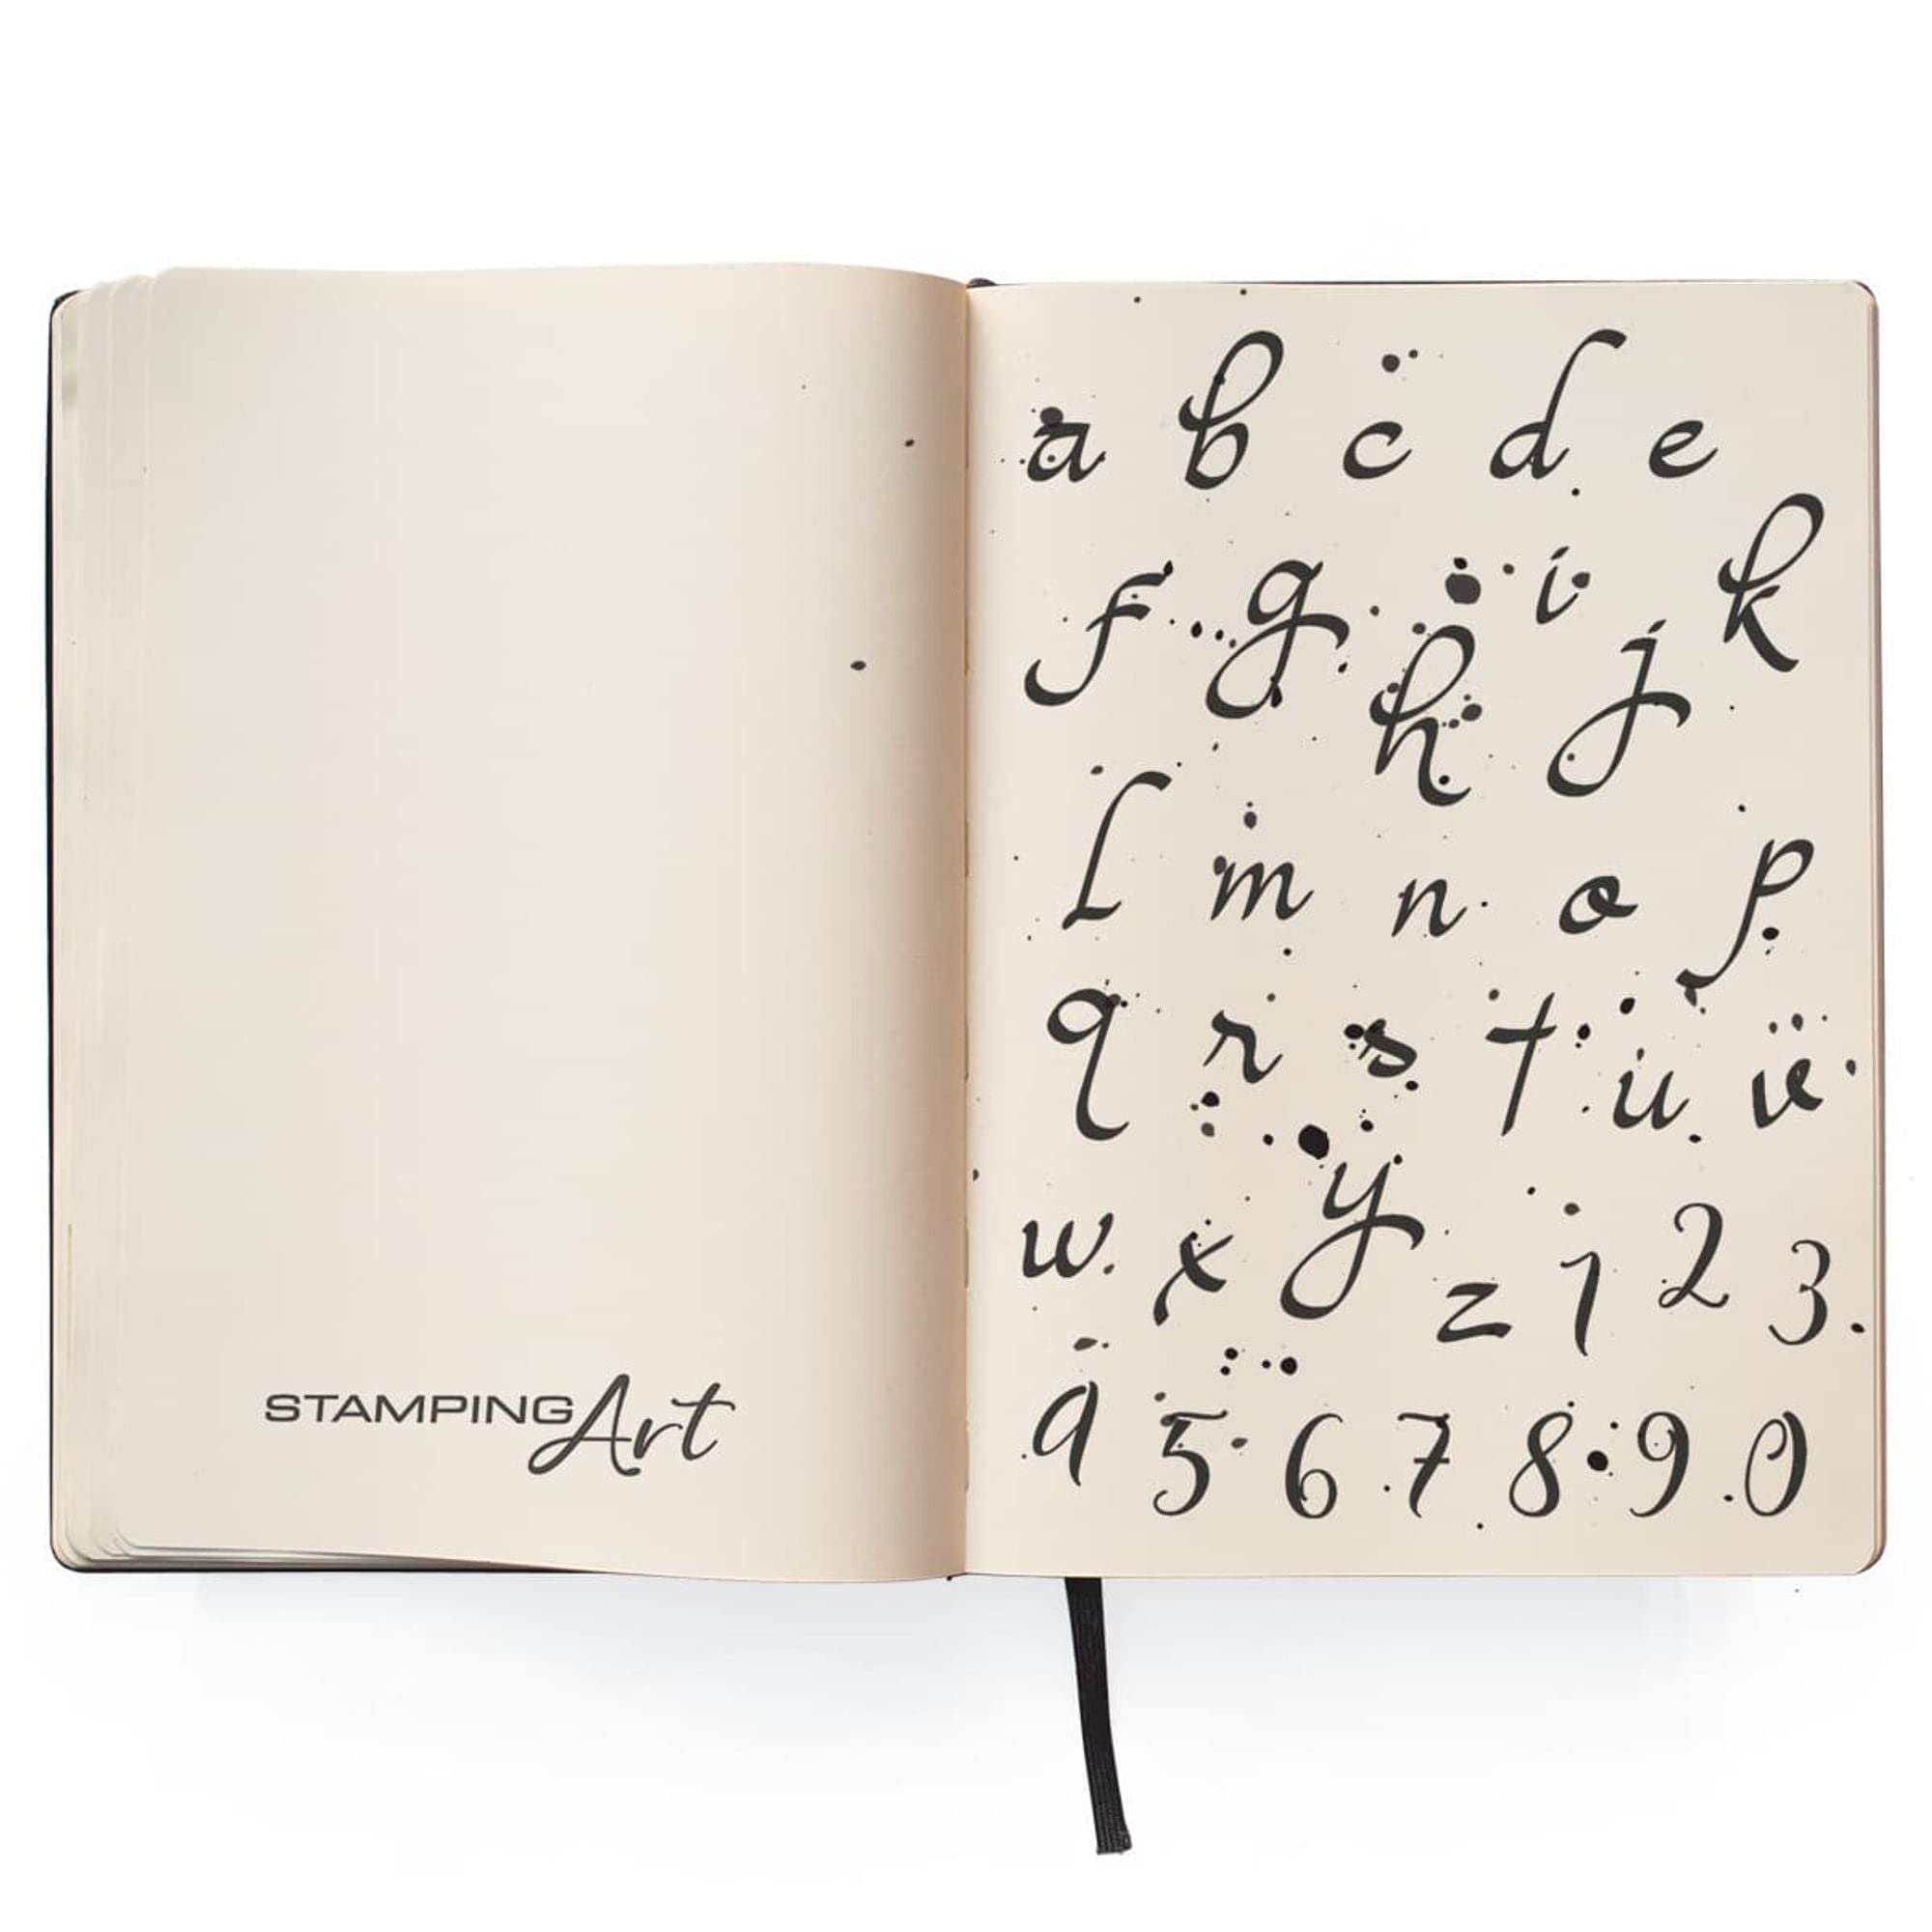 STAMPING Art
a b c d e
f g h i j k
l m n o p
q r s t u v
w x y z 1 2 3
4 5 6 7 8 9 0